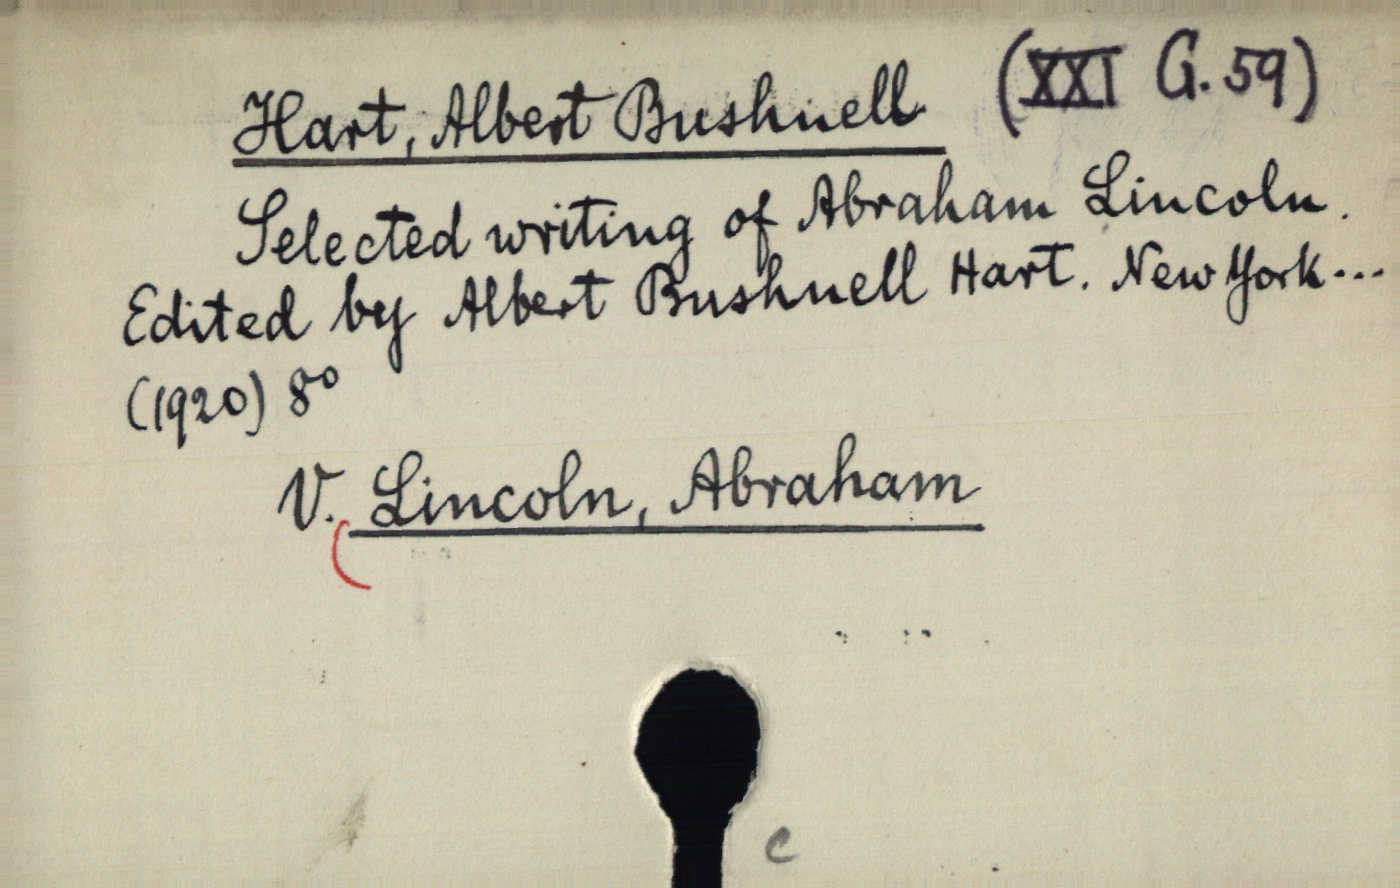 Hart, Albert Bushnell (XXI G. 59)
Selected writing of Abraham Lincoln.
Edited by Albert Bushnell Hart. New York...
(1920) 8°
V. Lincoln, Abraham
c